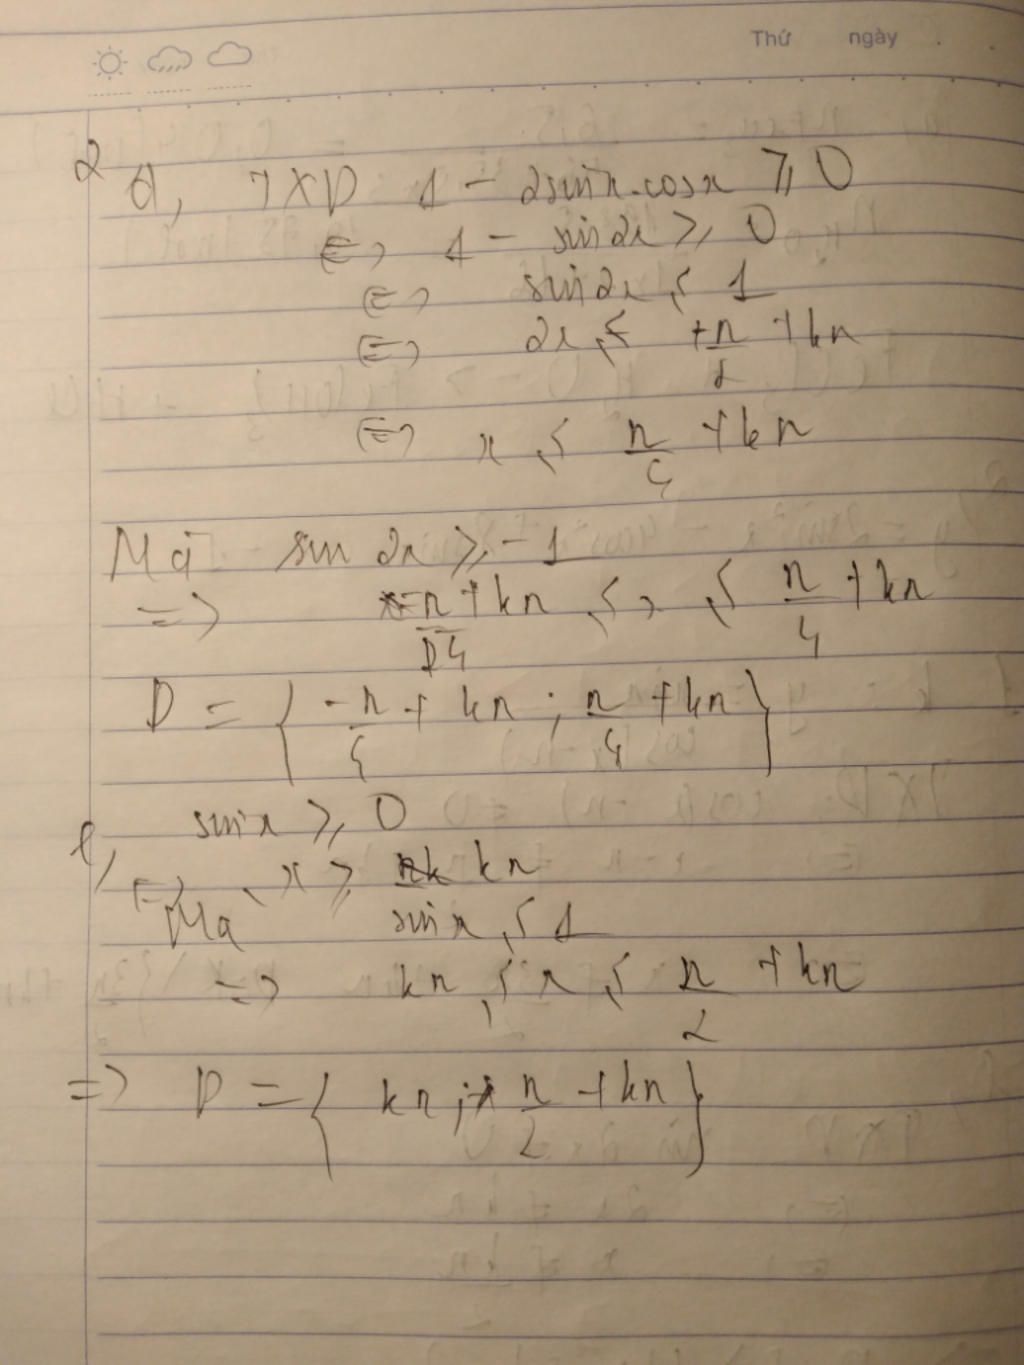 Thứ ngày
2
a, TXD 1 - 2sinx.cosx ⩾ 0
⇔ 1 - sin2x ⩾ 0
⇔ sin2x ⩽ 1
⇔ 2x ⩽ +π/2 + kπ
⇔ x ⩽ π/4 + kπ
Mà sin 2x ⩾ -1
=> -π/4 + kπ ⩽ x ⩽ π/4 + kπ
D = { -π/4 + kπ ; π/4 + kπ }
e, sinx ⩾ 0
⇔ x ⩾ kπ
Mà sinx ⩽ 1
=> kπ ⩽ x ⩽ π/2 + kπ
=> D = { kπ ; π/2 + kπ }